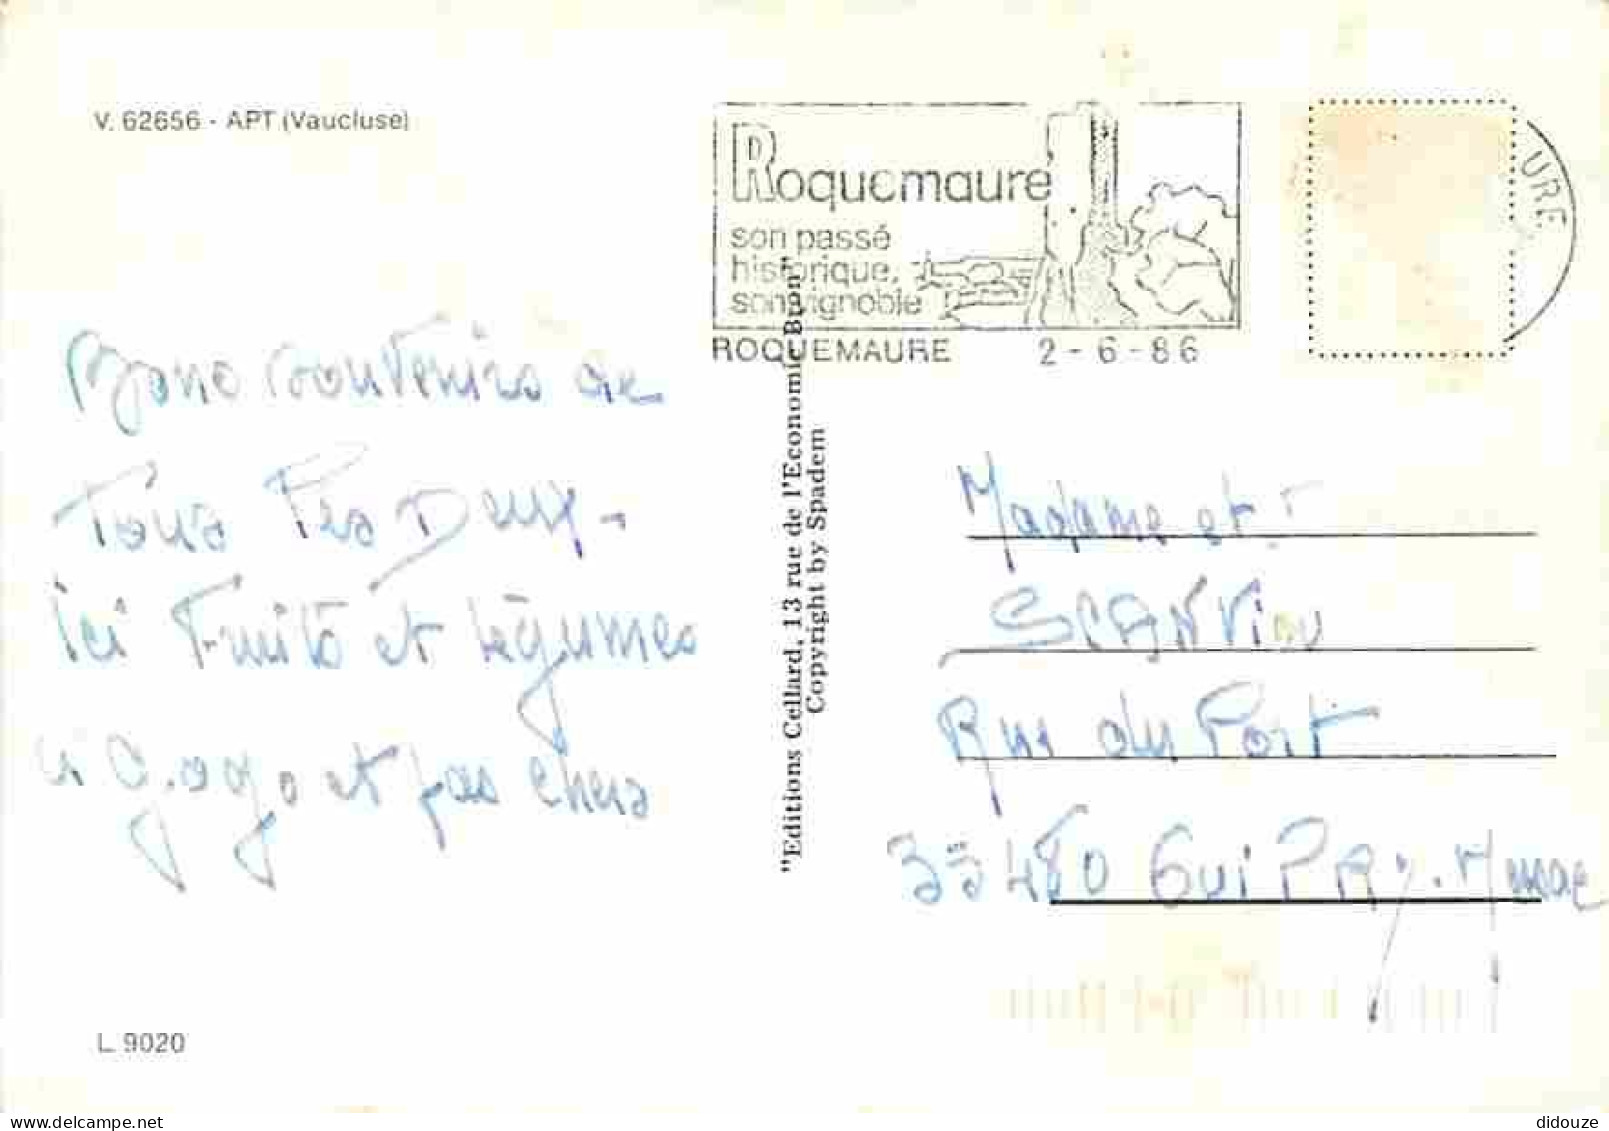 V. 62656 - APT (Vaucluse)
Roquemaure
son passé
historique,
son vignoble
ROQUEMAURE 2-6-86
URE
Bons souvenirs de
Tous les Deux -
ici Fruits et légumes
a gogo et pas chers
"Editions Cellard, 13 rue de l'Economie Bron"
Copyright by Spadem
Madame et
Rue du Port
35480 Gui PRy. M
L. 9020
delcampe.net
didouze